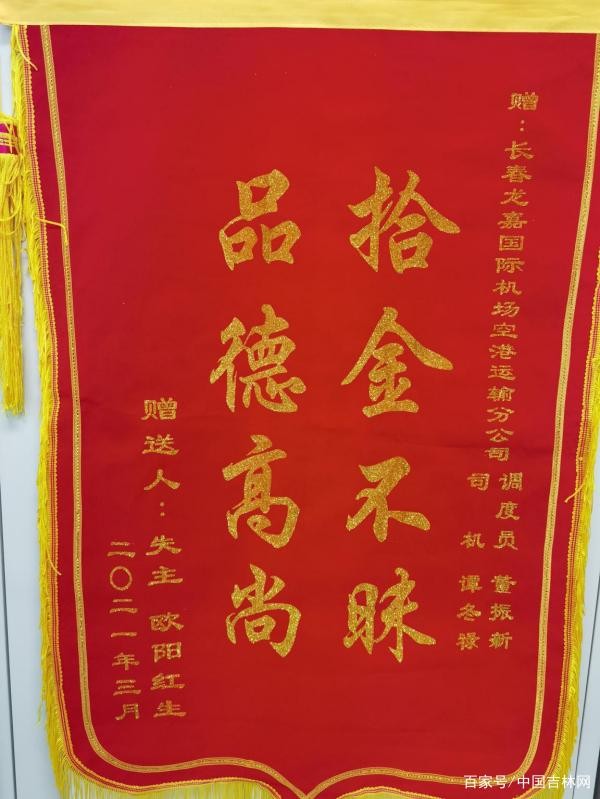 赠：长春龙嘉国际机场空港运输分公司 调度员 董振新
司机 谭冬禄
拾金不昧
品德高尚
赠送人：失主 欧阳红生
二〇二一年三月
百家号/中国吉林网